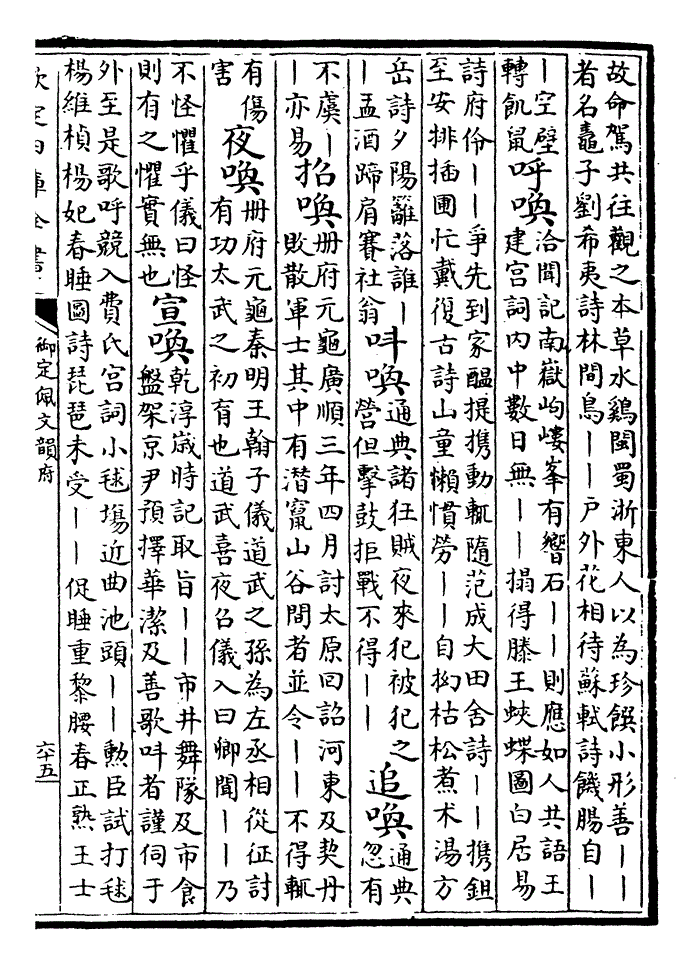 故命駕共往觀之本草水鷄閩蜀浙東人以為珍饌小形善丨丨
者名鼃子劉希夷詩林間鳥丨丨户外花相待蘇軾詩饑腸自丨
丨空壁
轉飢鼠
呼喚
洽聞記南嶽岣嶁峯有響石丨丨則應如人共語王
建宫詞内中數日無丨丨搨得滕王蛺蝶圖白居易
詩府伶丨丨爭先到家醖提攜動輒隨范成大田舍詩丨丨攜鉏
至安排插圃忙戴復古詩山童懶慣勞丨丨自抝枯松煮朮湯方
岳詩夕陽籬落誰丨
丨盂酒蹄肩賽社翁
呌喚
通典諸狂賊夜來犯被犯之
營但擊鼓拒戰不得丨丨
追喚
通典
忽有
不虞丨
丨亦易
招喚
冊府元龜廣順三年四月討太原回詔河東及契丹
敗散軍士其中有潛竄山谷間者並令丨丨不得輒
有傷
害
夜喚
冊府元龜秦明王翰子儀道武之孫為左丞相從征討
有功太武之初育也道武喜夜召儀入曰卿聞丨丨乃
不怪懼乎儀曰怪
則有之懼實無也
宣喚
乾淳歲時記取旨丨丨市井舞隊及市食
盤架京尹預擇華潔及善歌呌者謹伺于
外至是歌呼競入費氏宫詞小毬塲近曲池頭丨丨勲臣試打毬
楊維楨楊妃春睡圖詩琵琶未受丨丨促睡重黎腰春正熟王士
欽定四庫全書
御定佩文韻府
六十五